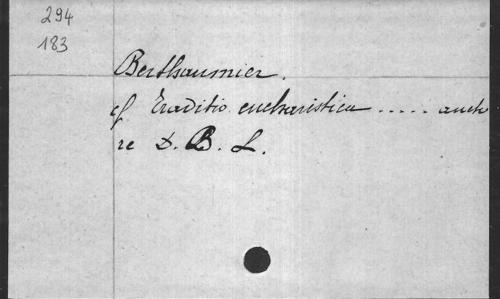 294
183
Berthaumier.
cf Traditio eucharistica ..... aucto
re D. B. L.